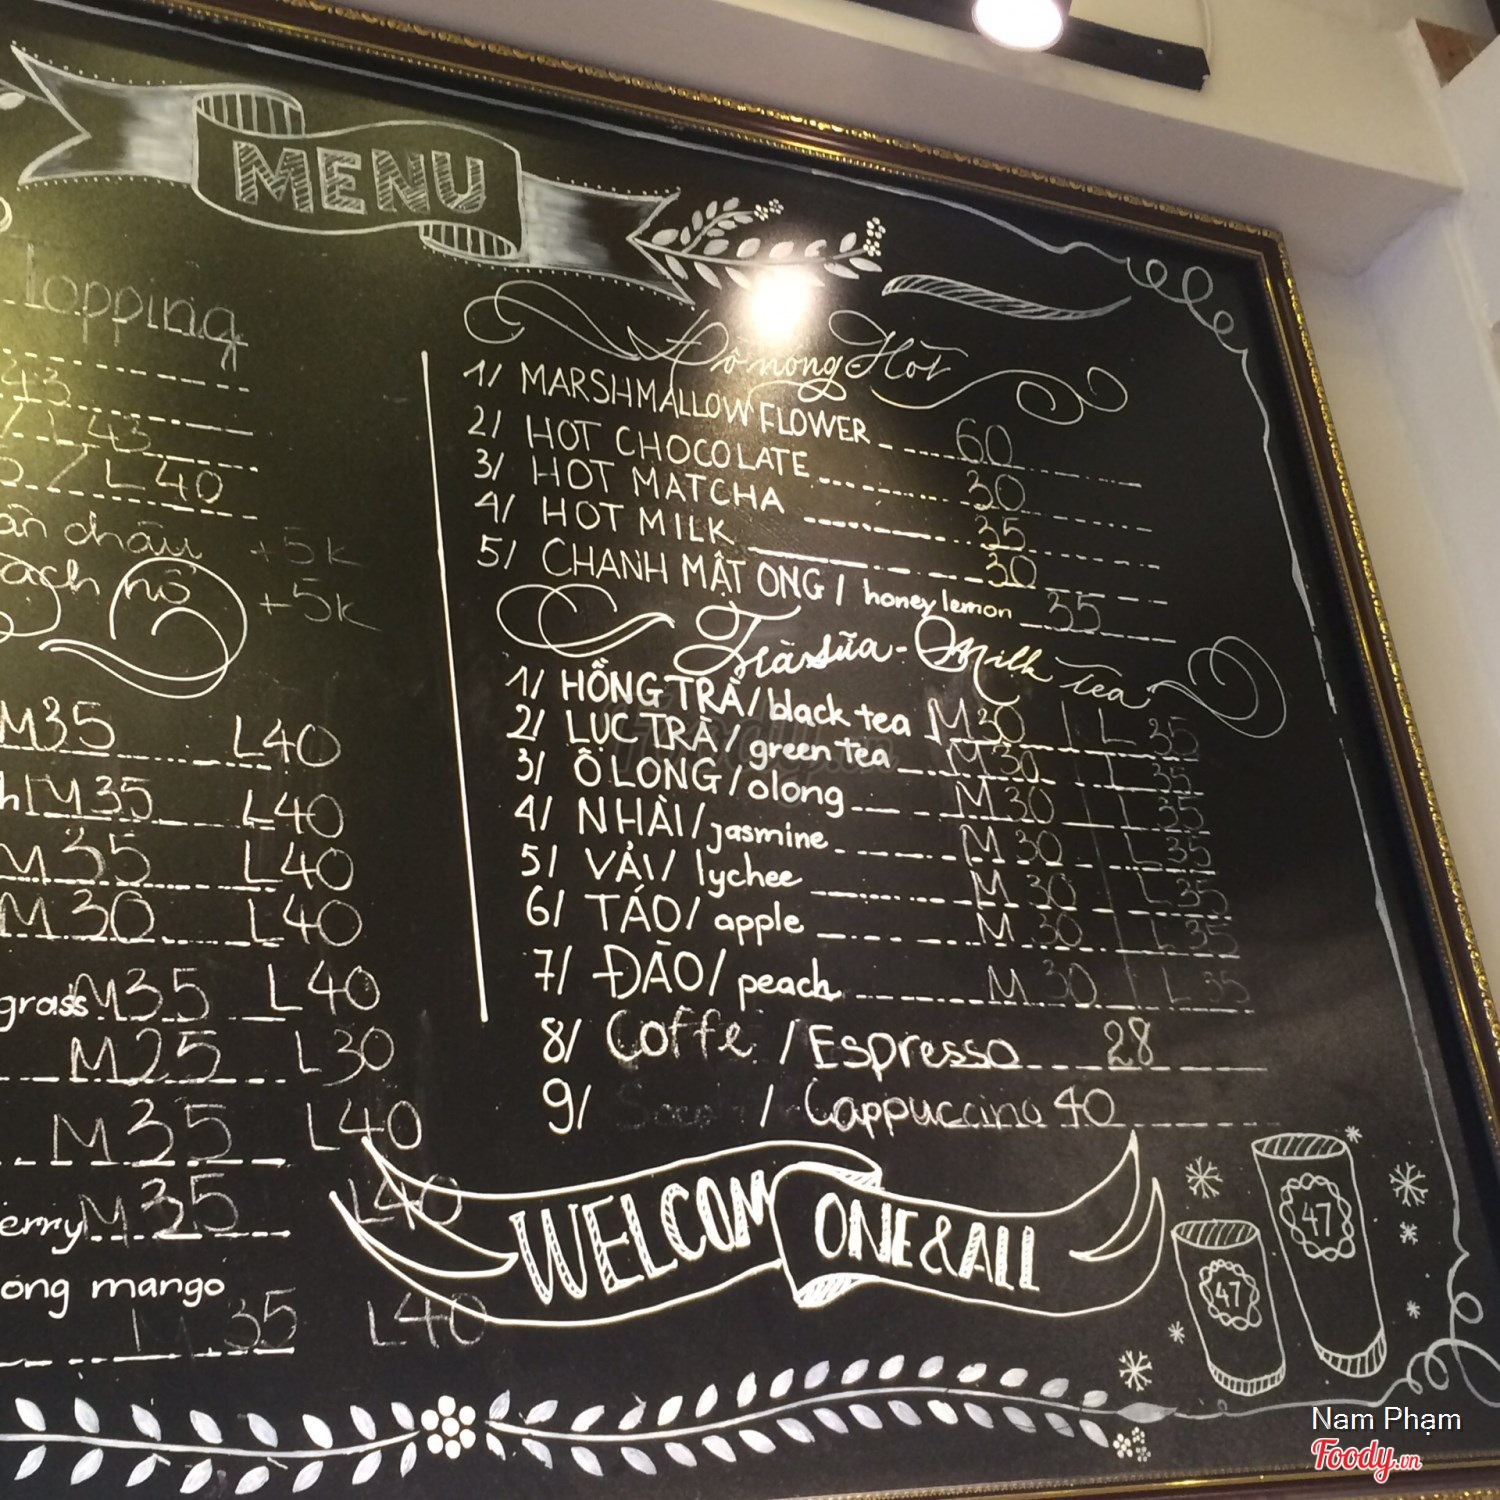 MENU
Topping
43
/ L43
/ L40
ân châu +5k
ạch hổ +5k
M35 L40
h M35 L40
M35 L40
M30 L40
grass M35 L40
M25 L30
M35 L40
erry M35 L40
ong mango
M35 L40
Đồ nóng Hot
1/ MARSHMALLOW FLOWER 60
2/ HOT CHOCOLATE 30
3/ HOT MATCHA 35
4/ HOT MILK 30
5/ CHANH MẬT ONG / honey lemon 35
Trà sữa - Milk Tea
1/ HỒNG TRÀ / black tea M30 L35
2/ LỤC TRÀ / green tea M30 L35
3/ Ô LONG / olong M30 L35
4/ NHÀI / jasmine M30 L35
5/ VẢI / lychee M30 L35
6/ TÁO / apple M30 L35
7/ ĐÀO / peach M30 L35
8/ Coffe / Espresso 28
9/ / Cappuccino 40
WELCOM ONE & ALL
47
47
Nam Phạm
Foody.vn